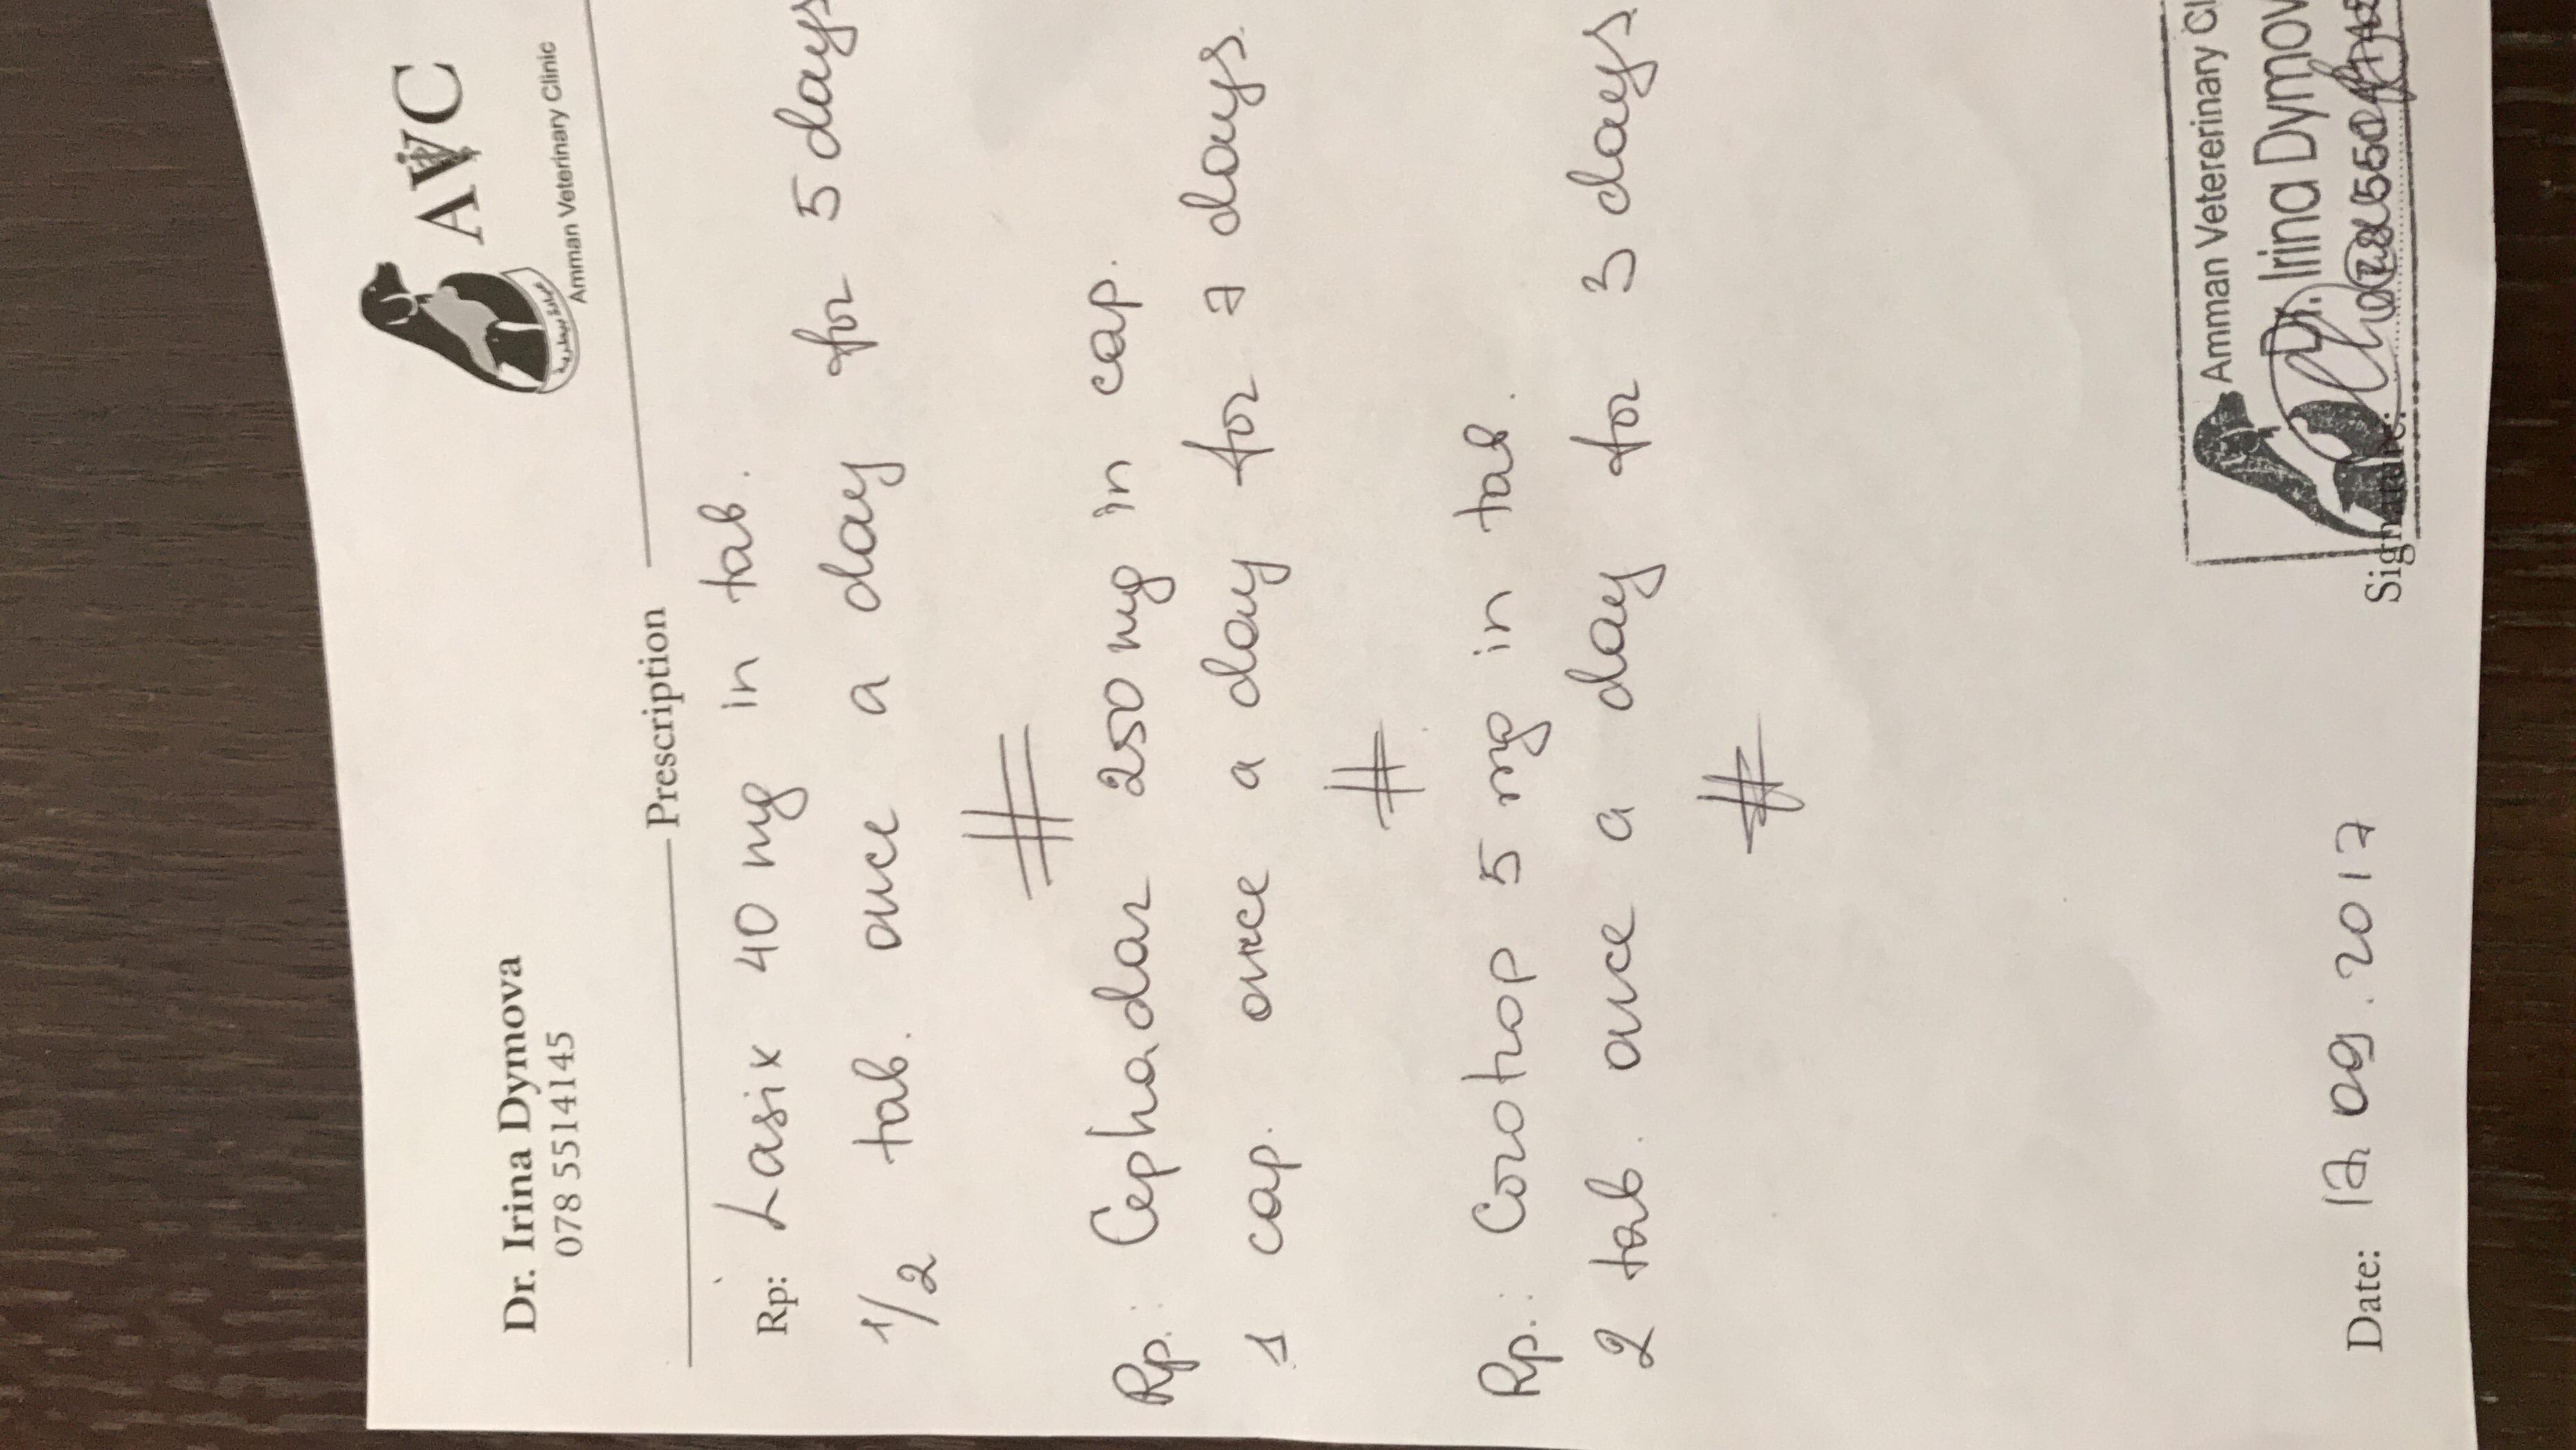 Dr. Irina Dymova
078 5514145
AVC
Amman Veterinary Clinic
عيادة بيطرية
Prescription
Rp: Lasix 40 mg in tab.
1/2 tab. once a day for 5 days
#
Rp.: Cephadar 250 mg in cap.
1 cap. once a day for 7 days.
#
Rp.: Corotrop 5 mg in tab.
2 tab. once a day for 3 days
#
Amman Vetererinary Cl
Dr. Irina Dymov
Date: 12.09.2017
Signature: